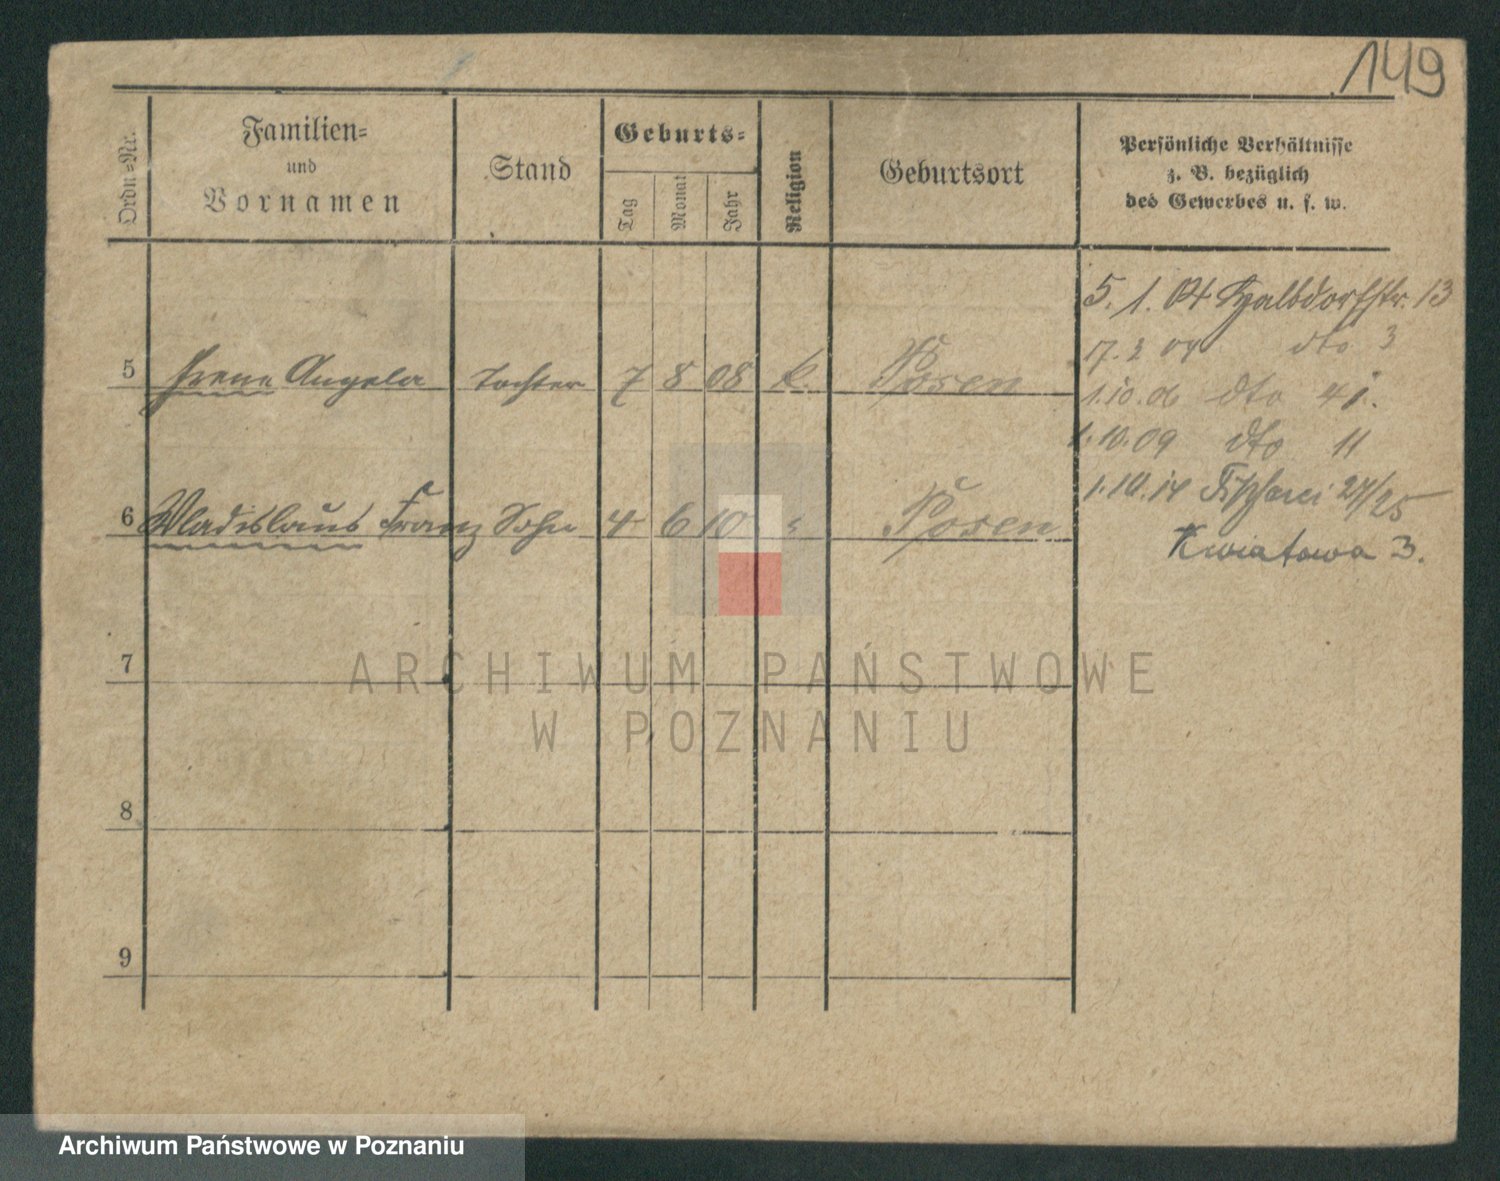 149
Ordn=Nr.
Familien=
und
Vornamen
Stand
Geburts=
Tag
Monat
Jahr
Religion
Geburtsort
Persönliche Verhältnisse
z. B. bezüglich
des Gewerbes u. s. w.
5. 1. 04 Halbdorfstr. 13
17. 2 04 dto 3
5 Irene Angela Tochter 7 8 08 k. Posen
1.10.06 dto 41.
1.10.09 dto 11
1.10.14 Fischerei 24/25
6 Wladislaus Franz Sohn 4 6 10 " Posen
Kwiatowa 3.
7
ARCHIWUM PAŃSTWOWE
W POZNANIU
8
9
Archiwum Państwowe w Poznaniu